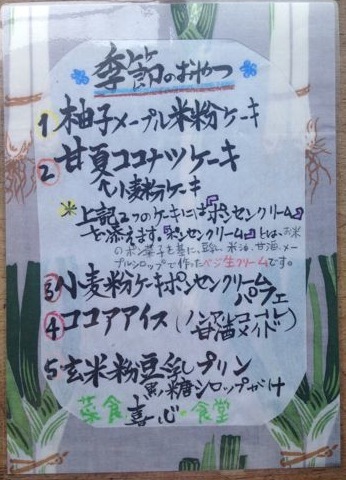 季節のおやつ
1 柚子メープル米粉ケーキ
2 甘夏ココナツケーキ
↑小麦粉ケーキ
※上記2つのケーキには『ポンセンクリーム』
を添えます。『ポンセンクリーム』とは、お米
のポン菓子を基に、豆乳、米油、甘酒、メー
プルシロップで作ったベジ生クリームです。
3 小麦粉ケーキポンセンクリーム
パフェ
4 ココアアイス(ノンアルコール
甘酒メイド)
5 玄米粉豆乳プリン
黒糖シロップがけ
菜食 喜心・食堂